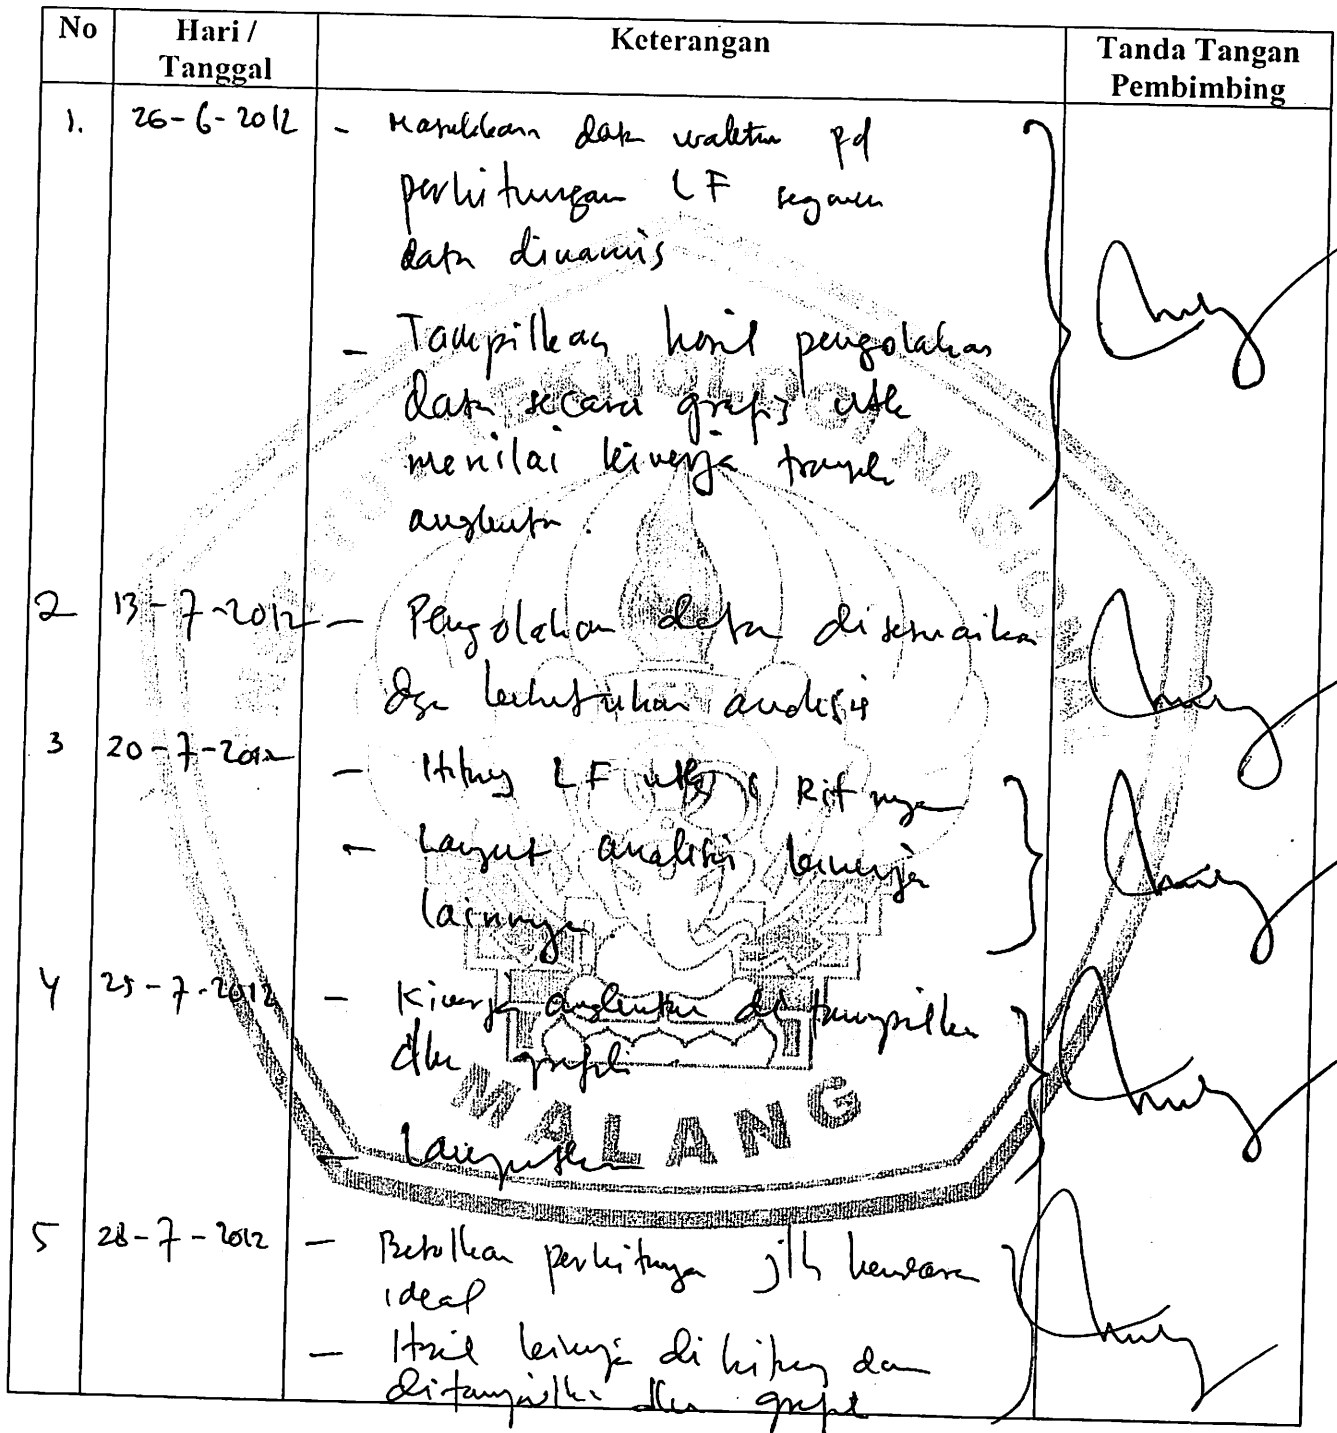 No Hari / Tanggal Keterangan Tanda Tangan Pembimbing
1. 26-6-2012 - Masukkan data waktu pd
perhitungan LF segmen
data dinamis
- Tampilkan hasil pengolahan
data secara grafis utk
menilai kinerja trayek
angkutan.
2 13-7-2012 - Pengolahan data disesuaikan
dgn kebutuhan analisis
3 20-7-2012
- Hitung LF utk Rit nya
- Lanjut analisis kinerja
lainnya
4 25-7-2012 - Kinerja angkutan ditampilkan
dlm grafik
- Lanjutkan
5 28-7-2012 - Betulkan perhitungan jlh kendaraan
ideal
- Hasil kinerja dihitung dan
ditampilkan dlm grafik
TEKNOLOGI NASIONAL
MALANG